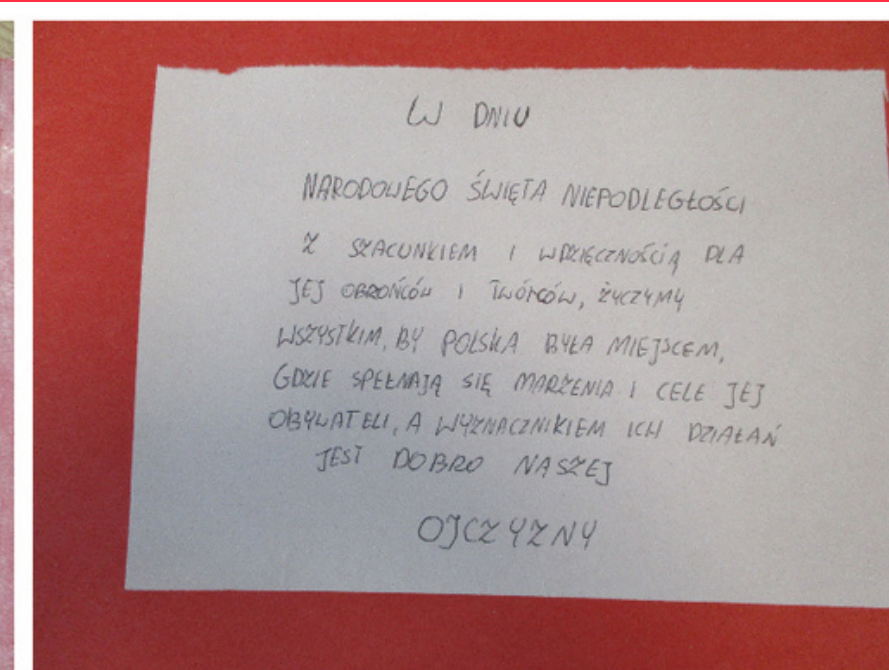 W DNIU
NARODOWEGO ŚWIĘTA NIEPODLEGŁOŚCI
Z SZACUNKIEM I WDZIĘCZNOŚCIĄ DLA
JEJ OBROŃCÓW I TWÓRCÓW, ŻYCZYMY
WSZYSTKIM, BY POLSKA BYŁA MIEJSCEM,
GDZIE SPEŁNIAJĄ SIĘ MARZENIA I CELE JEJ
OBYWATELI, A WYZNACZNIKIEM ICH DZIAŁAŃ
JEST DOBRO NASZEJ
OJCZYZNY